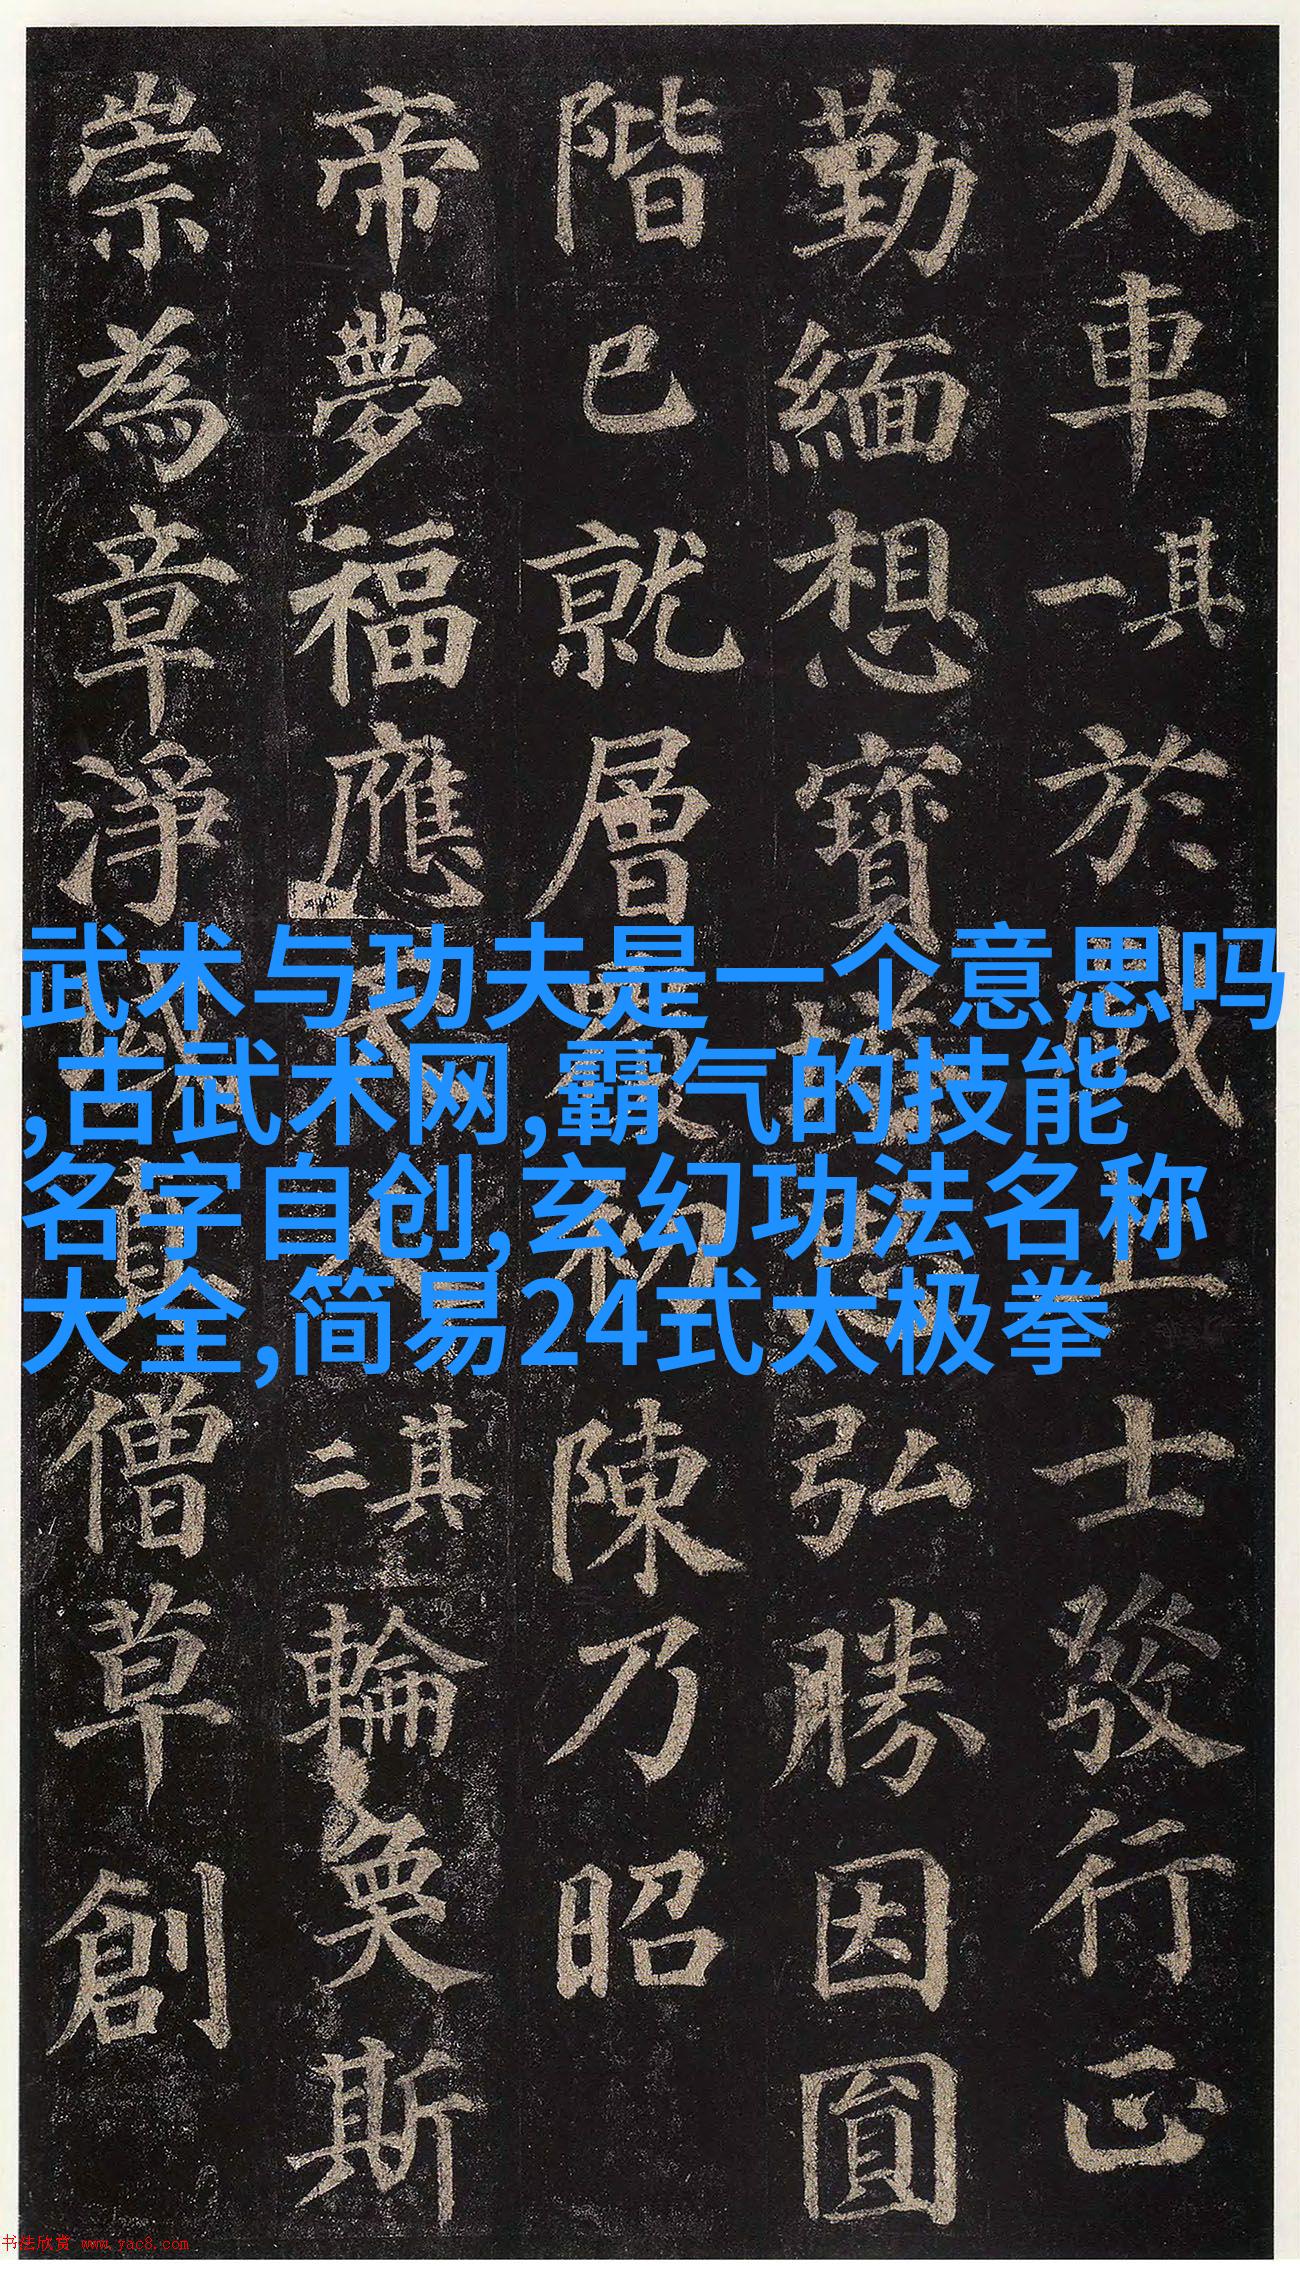 大車其一於戲上士發行正
勤緬想寶塔思弘勝因圓
階已就層覆初陳乃昭
帝夢福應天人其二輪奐斯
崇為章淨域真僧草創
武术与功夫是一个意思吗
,古武术网,霸气的技能
名字自创,玄幻功法名称
大全,简易24式太极拳
书法欣赏 www.yac8.com